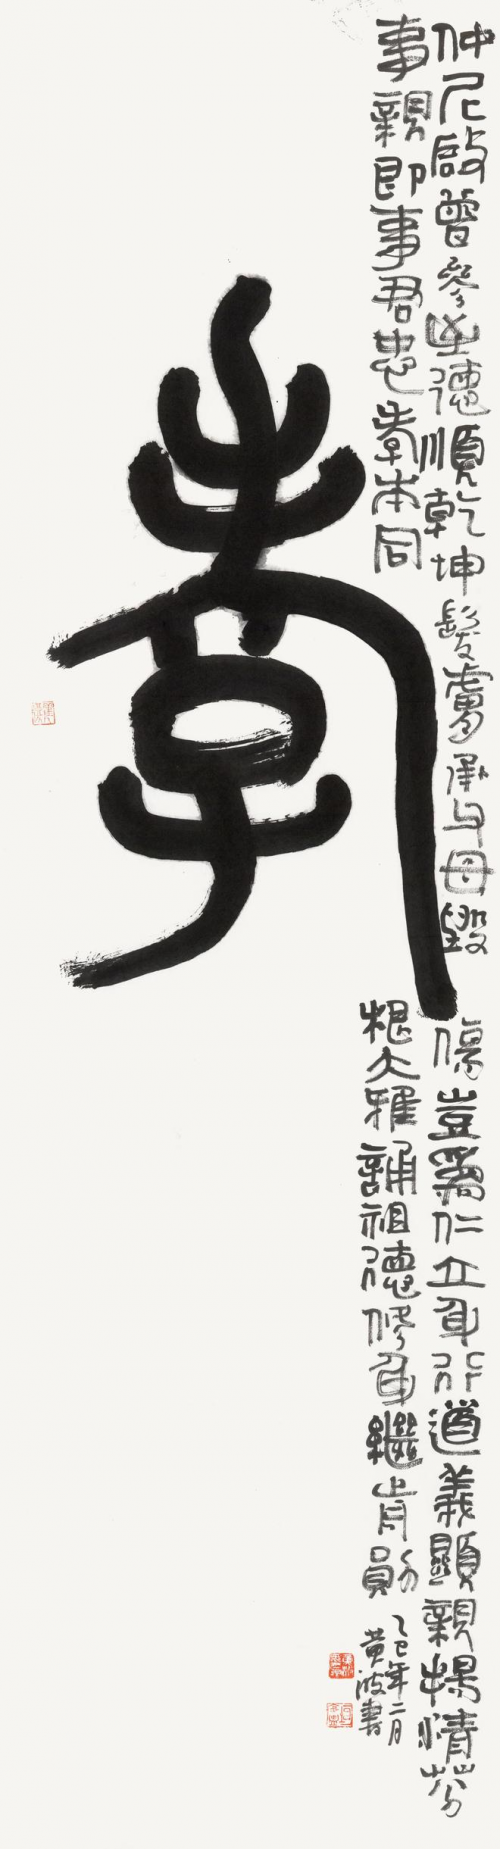 仲尼啟曾參至德順乾坤髮膚承父母毀傷豈為仁立身行道義顯親揚清芬
事親即事君忠孝本同根大雅誦祖德修身繼前勛
孝
乙巳年二月
黄波書